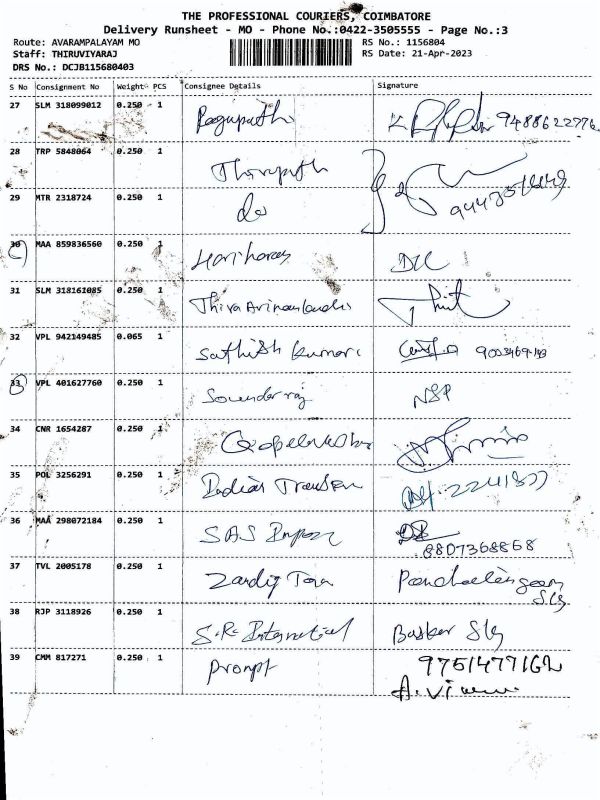 THE PROFESSIONAL COURIERS, COIMBATORE
Delivery Runsheet - MO - Phone No.:0422-3505555 - Page No.:3
Route: AVARAMPALAYAM MO RS No.: 1156804
Staff: THIRUVIYARAJ RS Date: 21-Apr-2023
DRS No.: DCJB115680403
S No Consignment No Weight PCS Consignee Details Signature
27 SLM 318099012 0.250 1 Ragupathi 9488622776
28 TRP 5848064 0.250 1 Thirupath
29 MTR 2318724 0.250 1 do
30 MAA 859836560 0.250 1 Hariharan
31 SLM 318161085 0.250 1
32 VPL 942149485 0.065 1 Sathish kumar
33 VPL 401627760 0.250 1 Sounderraj NSP
34 CNR 1654287 0.250 1
35 POL 3256291 0.250 1 Indian
36 MAA 298072184 0.250 1 SAS
8807368868
37 TVL 2005178 0.250 1
38 RJP 3118926 0.250 1 S.R. International Basker Slg
39 CMM 817271 0.250 1 Prompt 9751477162